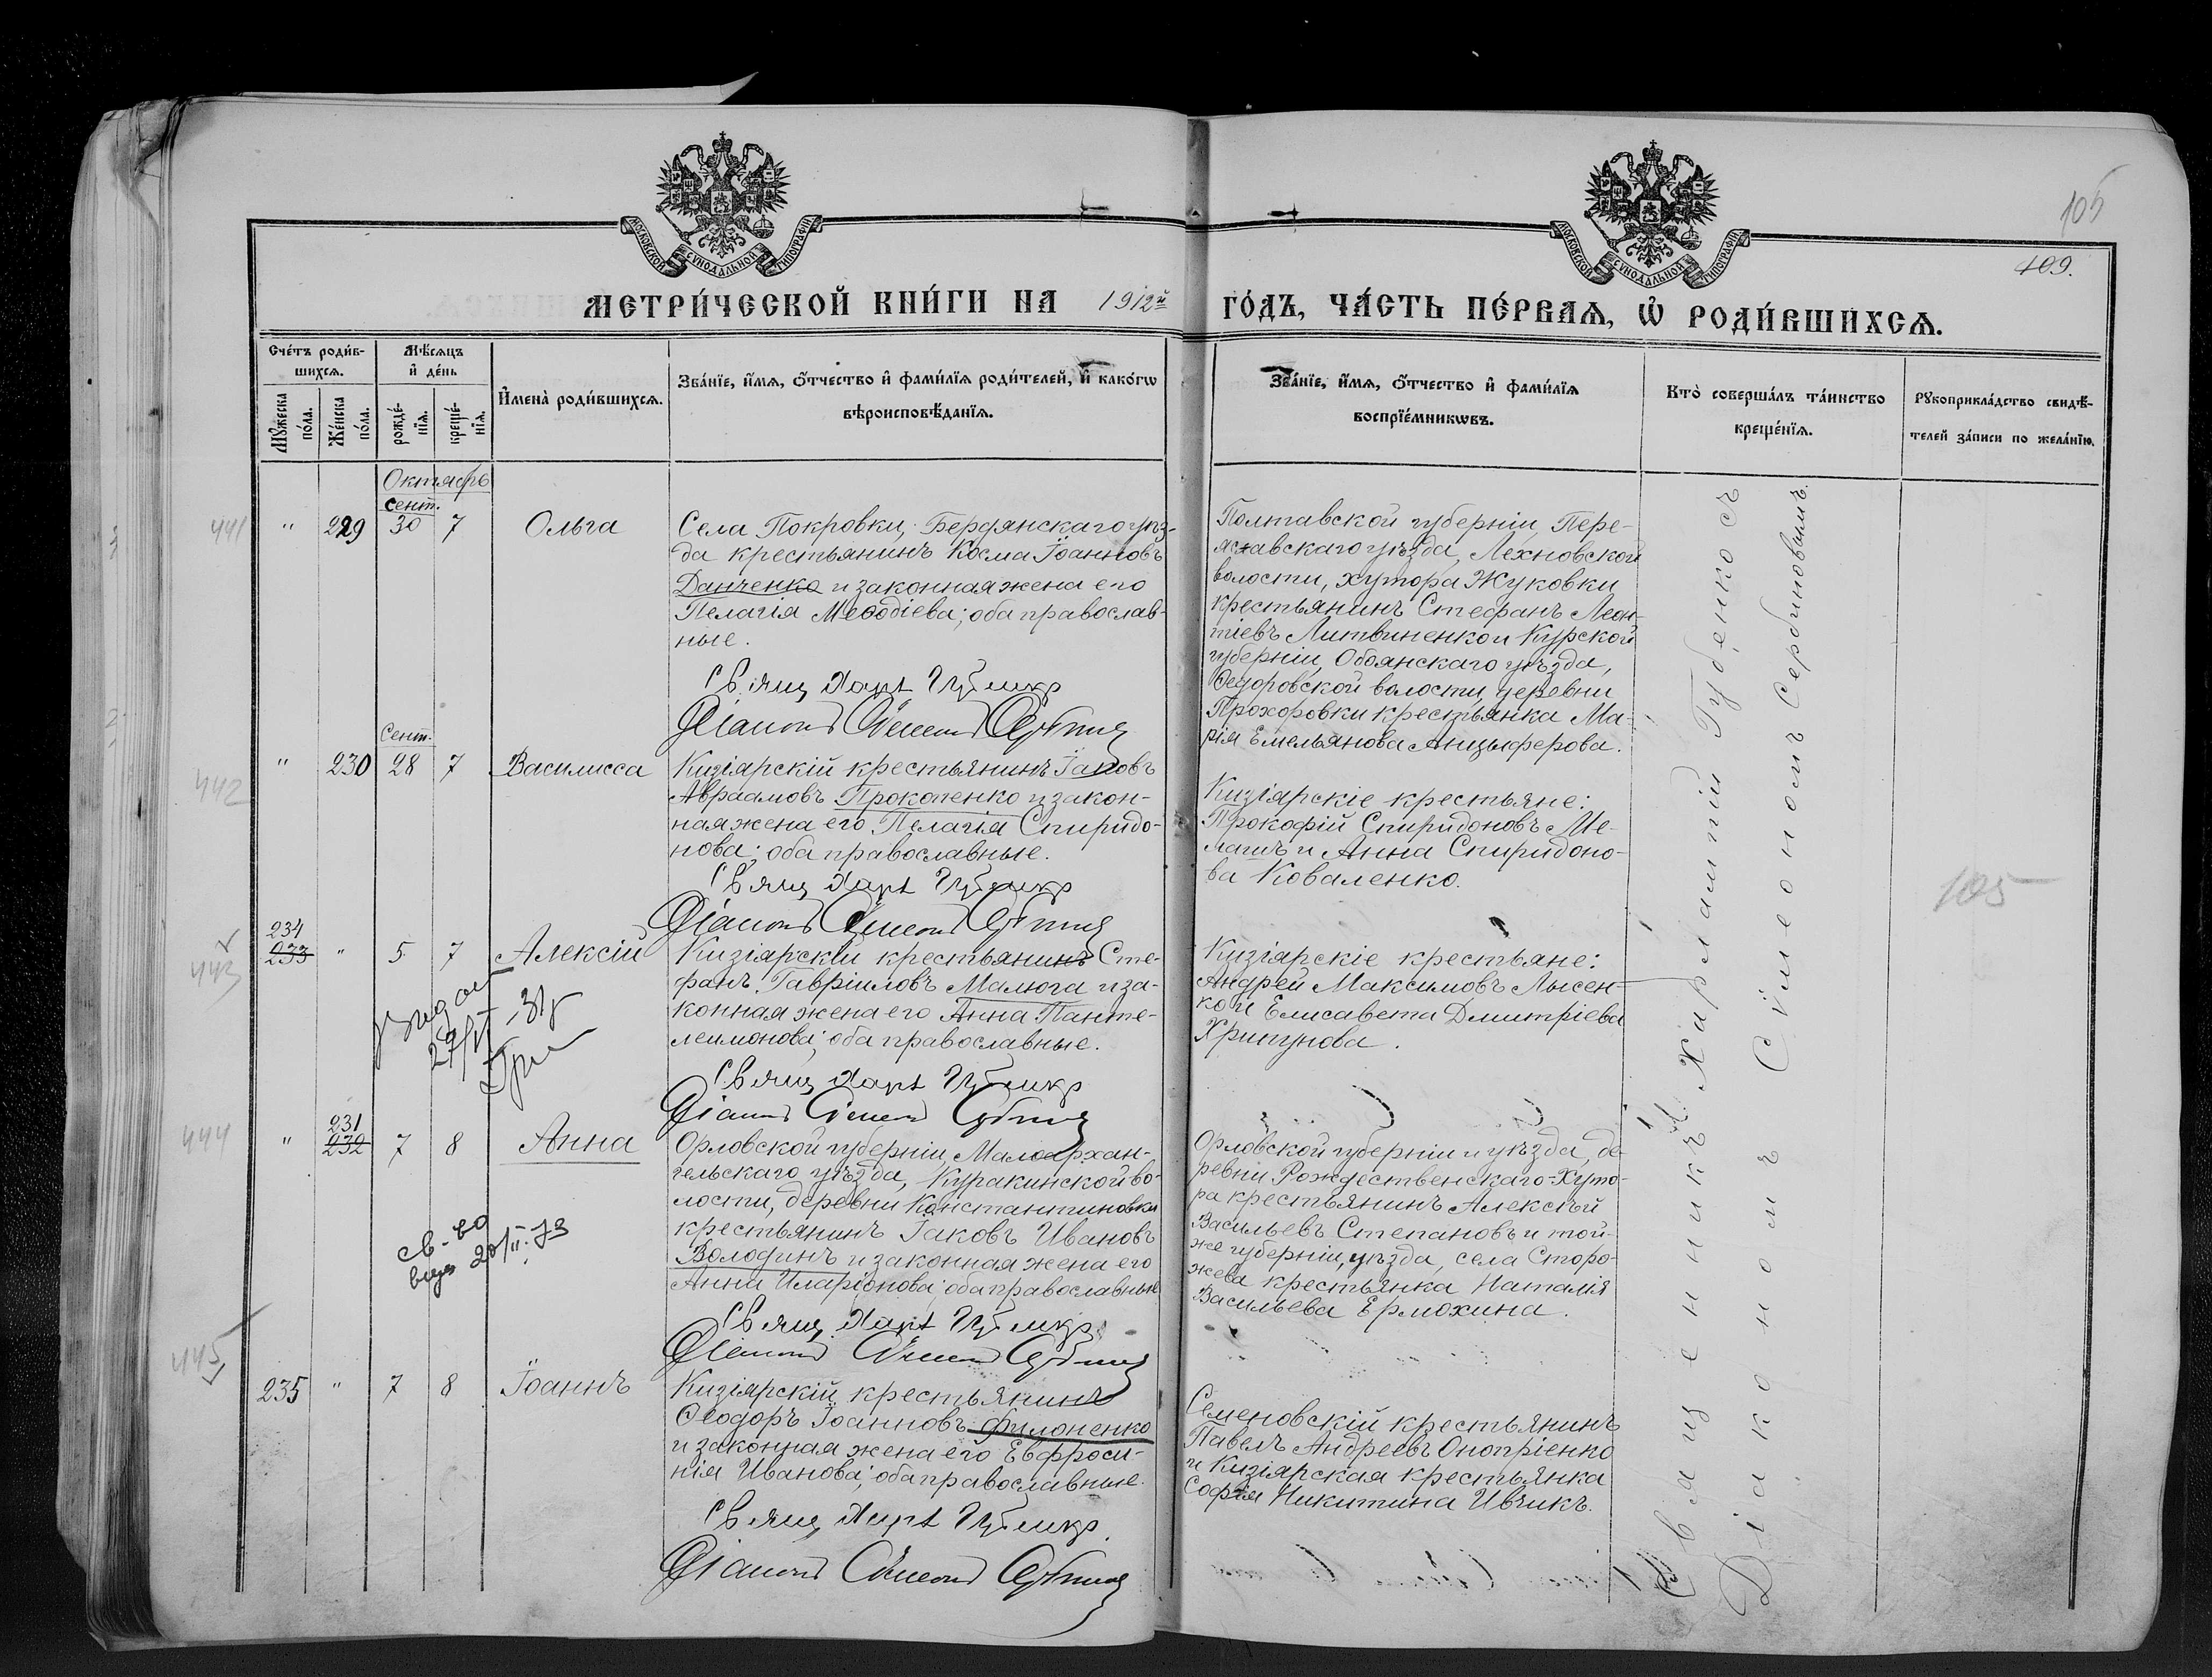 105
409.
МОСКОВСКОЙ СѴНОДАЛЬНОЙ ТИПОГРАФІИ
МОСКОВСКОЙ СѴНОДАЛЬНОЙ ТИПОГРАФІИ
МЕТРИ́ЧЕСКОЙ КНИ́ГИ НА 1912й ГО́ДЪ, ЧА́СТЬ ПЕ́РВАЯ, Ѽ РОДИ́ВШИХСЯ.
Сче́тъ роди́в-
шихся.
Мѣ́сяцъ
и҆ де́нь
Мꙋ́жеска
по́ла.
Же́нска
по́ла.
рожде́-
нїя.
креще́-
нїя.
И҆мена̀ роди́вшихся.
Зва́нїе, и҆́мя, ѻ҆́тчество и҆ фами́лїя роди́телей, и҆ како́гѡ
вѣроисповѣ́данїя.
Зва́нїе, и҆́мя, ѻ҆́тчество и҆ фами́лїя
воспрїе́мникѡвъ.
Кто̀ соверша́лъ та́инство
креще́нїя.
Рꙋкоприкла́дство свидѣ́-
телей за́писи по жела́нїю.
Октябрь
441
"
229
сент.
30
7
Ольга
Села Покровки, Бердянскаго уѣз-
да крестьянинъ Косма Іоанновъ
Данченко и законная жена его
Пелагія Меѳодіева; оба православ-
ные.
Свящ. Харл. Губенко
Діаконъ Сѵмеонъ Сербиновъ
Полтавской губерніи, Пере-
яславскаго уѣзда, Лехновской
волости, хутора Жуковки
крестьянинъ Стефанъ Леон-
тіевъ Литвиненко и Курской
губерніи, Обоянскаго уѣзда,
Ѳедоровской волости, деревни
Прохоровки крестьянка Ма-
рія Емельянова Анцыферова.
442
"
230
Сент.
28
7
Василисса
Кизіярскій крестьянинъ Іаковъ
Авраамовъ Прокопенко и закон-
ная жена его Пелагія Спиридо-
нова; оба православные.
Свящ. Харл. Губенко
Діаконъ Сѵмеонъ Сербиновъ
Кизіярскіе крестьяне:
Прокофій Спиридоновъ Ме-
лашъ и Анна Спиридоно-
ва Коваленко.
443
234
233
"
5
7
Алексій
Кизіярскій крестьянинъ Сте-
фанъ Гавріиловъ Малюга и за-
конная жена его Анна Панте-
леимонова; оба православные.
Свящ. Харл. Губенко
Діаконъ Сѵмеонъ Сербиновъ
Кизіярскіе крестьяне:
Андрей Максимовъ Лысен-
ко и Елисавета Дмитріева
Хрипунова.
444
"
231
232
7
8
Анна
Орловской губерніи, Малоархан-
гельскаго уѣзда, Куракинской во-
лости, деревни Константиновки
крестьянинъ Іаковъ Ивановъ
Володинъ и законная жена его
Анна Иларіонова; оба православные
Свящ. Харл. Губенко
Діаконъ Сѵмеонъ Сербиновъ
св-во
20/II-73
Орловской губерніи и уѣзда, де-
ревни Рождественскаго-Хуто-
ра крестьянинъ Алексѣй
Васильевъ Степановъ и той-
же губерніи, уѣзда, села Сторо-
жева крестьянка Наталія
Васильева Ермохина.
445
235
"
7
8
Іоаннъ
Кизіярскій крестьянинъ
Ѳеодоръ Іоанновъ Филоненко
и законная жена его Евфроси-
нія Иванова; оба православные.
Свящ. Харл. Губенко
Діаконъ Сѵмеонъ Сербиновъ
Семеновскій крестьянинъ
Павелъ Андреевъ Оноприенко
и Кизіярская крестьянка
Софія Никитина Ивчикъ.
Священникъ Харлампій Губенко съ
Діакономъ Сѵмеономъ Сербиновымъ.
105